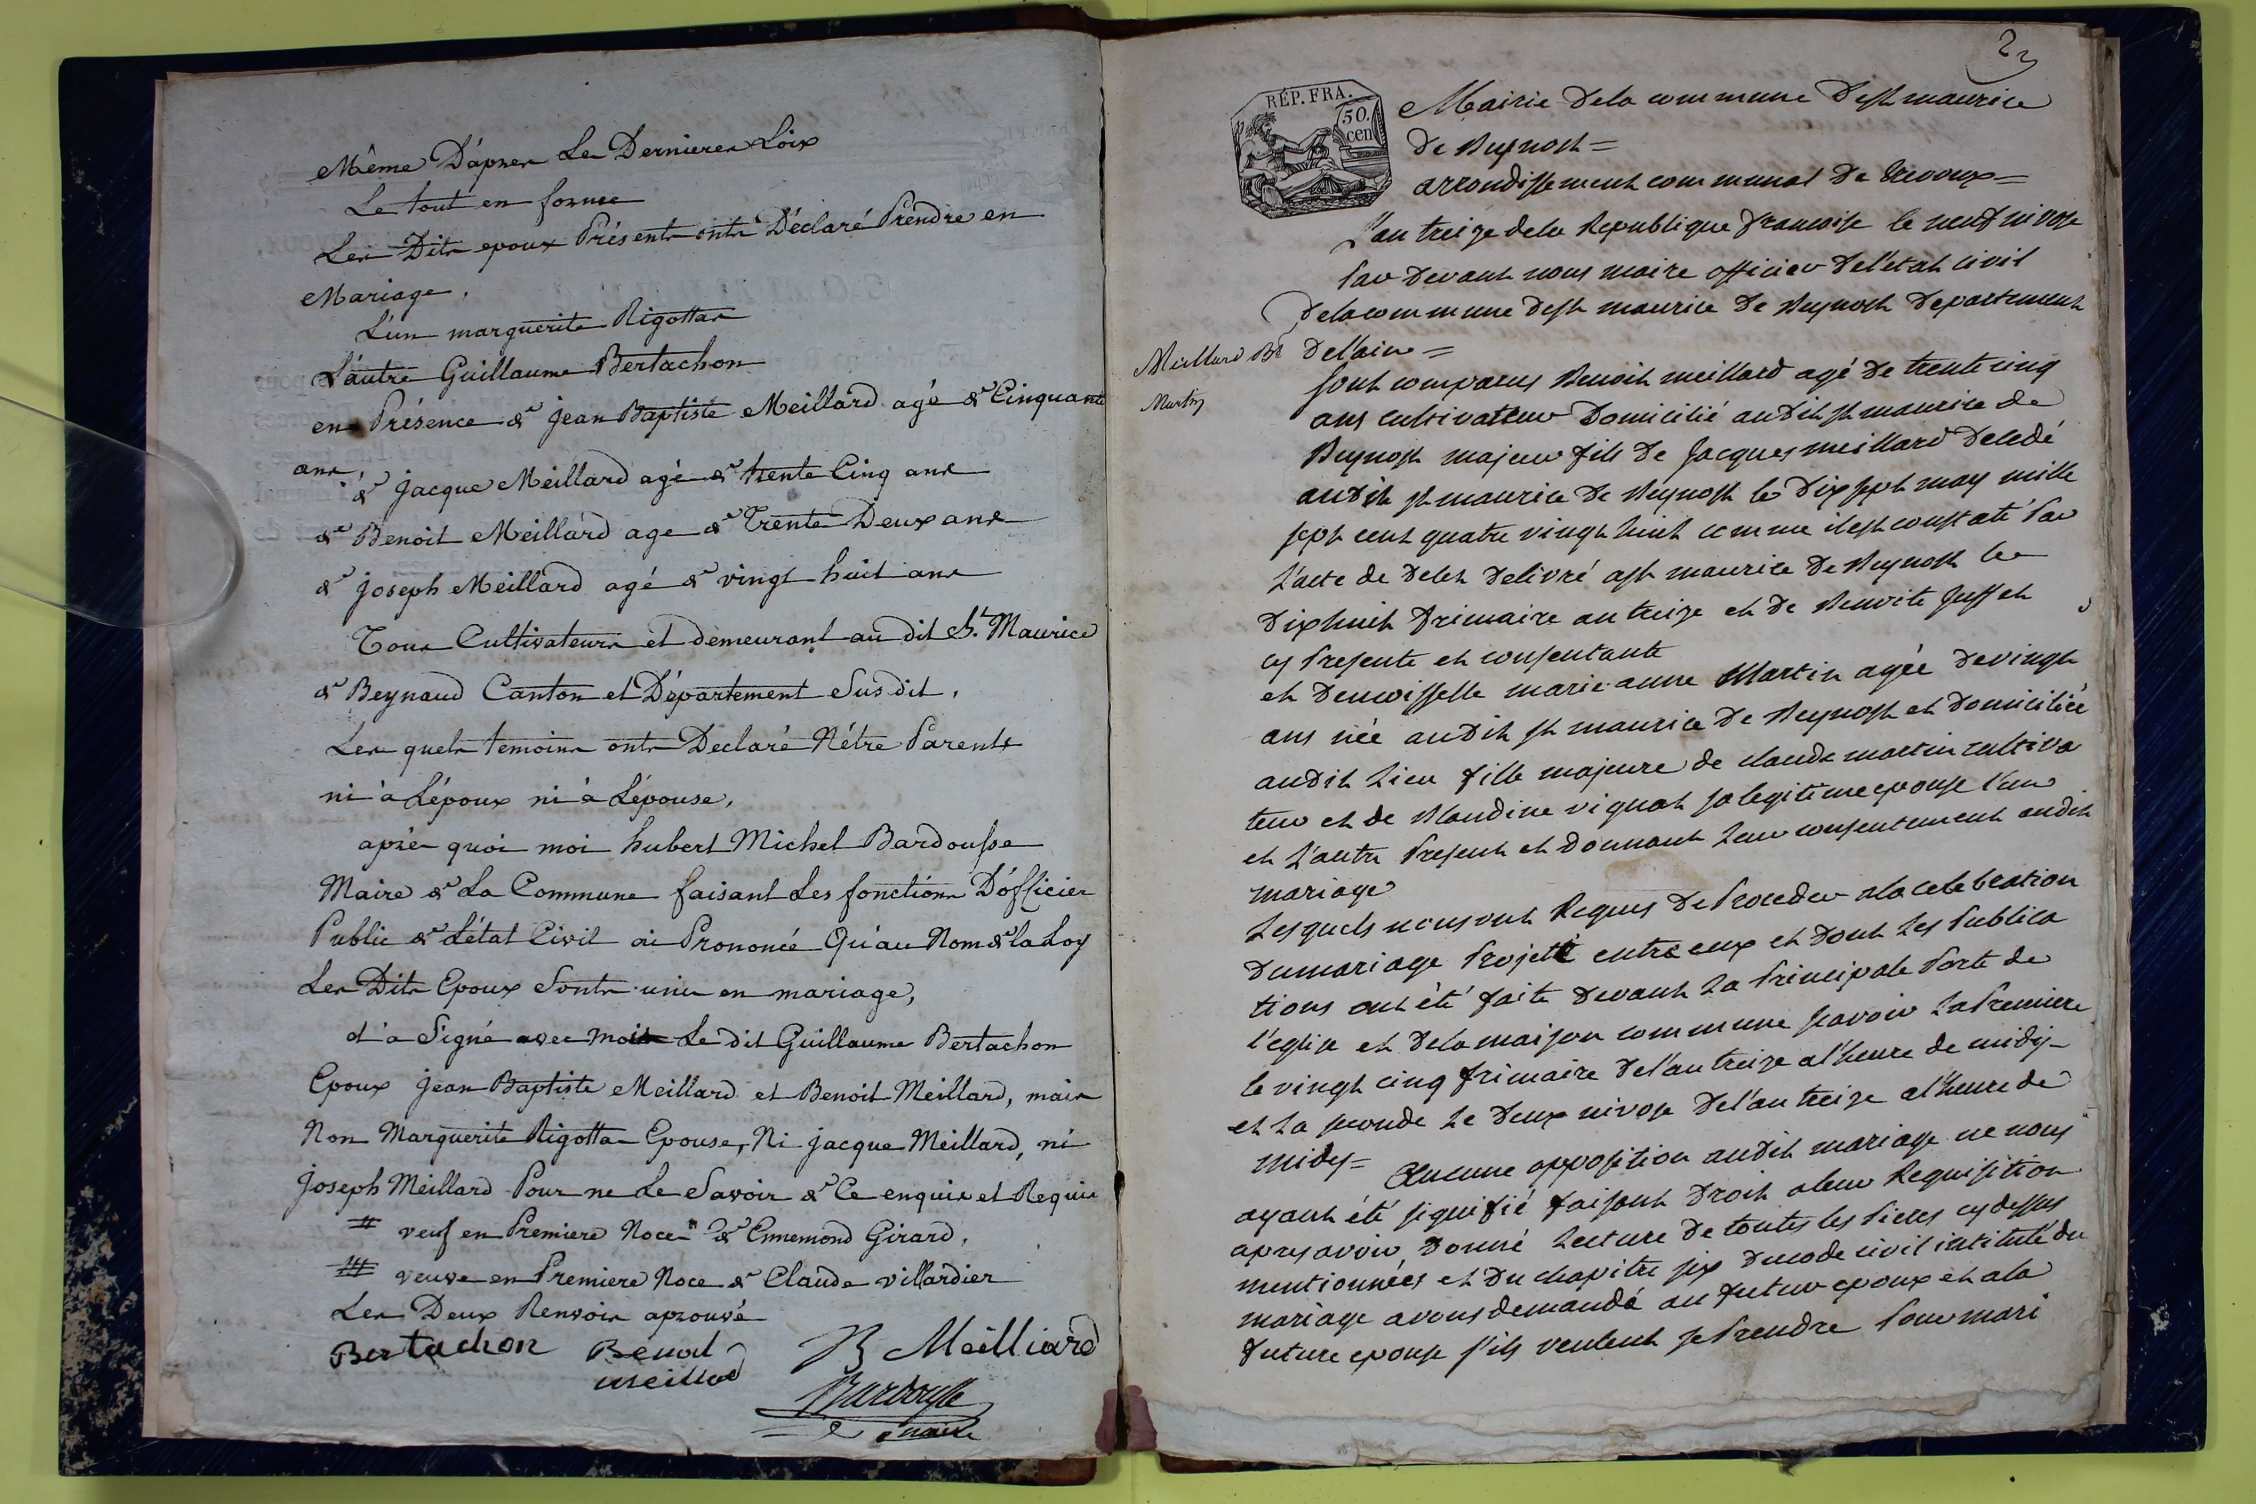 Même D'aprer Les Dernierer Loix
Le tout en forme
Les Dits epoux Présents onts Déclaré Prendre en
Mariage,
L'un marguerite Rigottar
L'autre Guillaume Bertachon
en Présence de jean Baptiste Meillard agé de Cinquante
ans,
de Jacque Meillard agé de trente Cinq ans
de Benoit Meillard age de Trente Deux ans
de joseph Meillard agé de vingt huit ans
Tous Cultivateurs et demeurant au dit St. Maurice
de Beynaud Canton et Département Susdit,
Les quels temoins onts Declaré N'étre Parents
ni à L'époux ni à L'épouse,
après quoi moi hubert Michel Bardousse
Maire de La Commune faisant Les fonctions D'officier
Public de L'état Civil ai Prononcé Qu'au Nom de la Loy
Les Dits Epoux Sonts unis en mariage,
et a Signé avec moi Le dit Guillaume Bertachon
Epoux jean Baptiste Meillard et Benoit Meillard, mais
Non Marguerite Rigotta Epouse, Ni jacque Meillard, ni
joseph Meillard Pour ne Le Savoir de Ce enquis et Requis
# veuf en Premiere Noce de Ennemond Girard,
## veuve en Premiere Noce de Claude villardier
Les Deux Renvois aprouvé
Bertachon Benoit B Meilliard
meillard
Bardousse
maire
23
RÉP. FRA.
50.
cen
Mairie dela commune dest maurice
de Beynost =
arrondissement communal de trevoux =
L'an treize dela Republique francoise le neuf nivose
Par devant nous maire officier del'etat civil
dela commune dest maurice de Beynost departement
del'ain =
Meillard Bt
Martin
sont comparus Benoit meillard agé de trente cinq
ans cultivateur domicilié audit st maurice de
Beynost majeur fils de jacques meillard decedé
audit st maurice de Beynost le dix sept may mille
sept cent quatre vingt huit comme il est constaté Par
L'acte de deces delivré a st maurice de Beynost le
dixhuit frimaire an treize et de Benoite jusseh
cy Presente et consentante
et demoisselle marie anne Martin agée de vingt
ans née audit st maurice de Beynost et domiciliée
audit Lieu fille majeure de claude martin cultiva
teur et de Blandine vignat sa legitime epouse l'un
et L'autre Present et donnant Leur consentement audit
mariage
Lesquels nous ont Requis de Proceder ala celebration
du mariage Projeté entre eux et dont les Publica
tions ont été faite devant la Principale Porte de
l'eglise et dela maison commune scavoir La Premiere
le vingt cinq frimaire del'an treize a l'heure de midy
et La seconde Le deux nivose del'an treize a l'heure de
midy =
Aucune opposition audit mariage ne nous
ayant été signifié faisant droit aleur Requisition
apres avoir donné Lecture de toutes les Pieces cy dessus
mentionnées et du chapitre six du code civil intitulé du
mariage avons demandé au futur epoux et ala
future epouse s'ils veulent se Prendre Pour mari